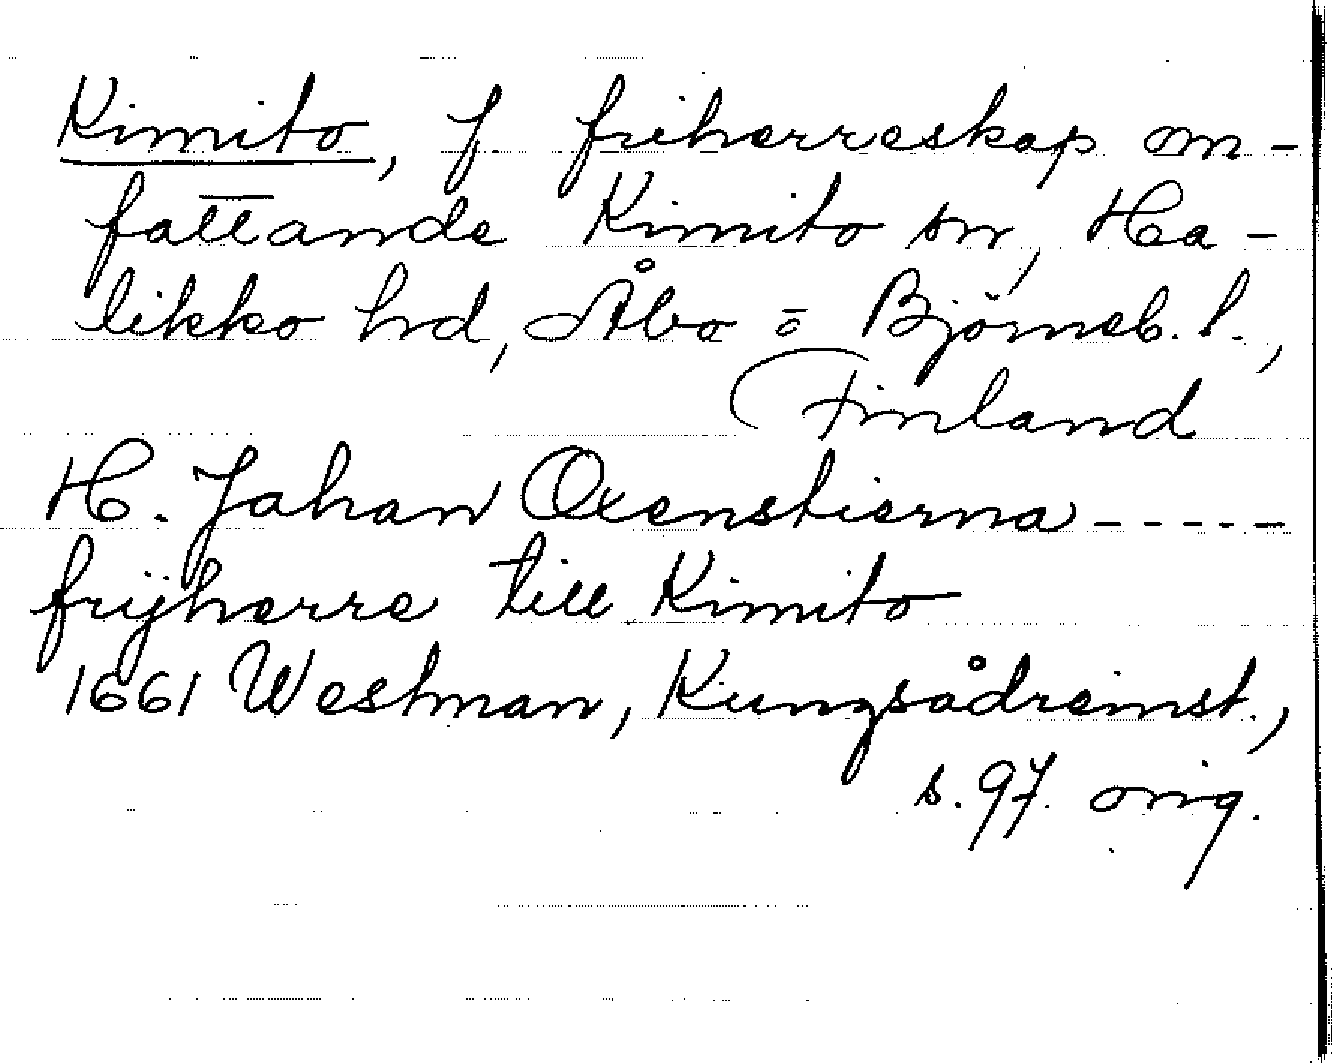 Kimito, f friherreskap om-
fattande Kimito sn, Ha-
likko hd, Åbo o Björneb. l.,
Finland
H. Johan Oxenstierna -----
frijherre till Kimito
1661 Westman, Kungsådreinst.,
s. 97. orig.